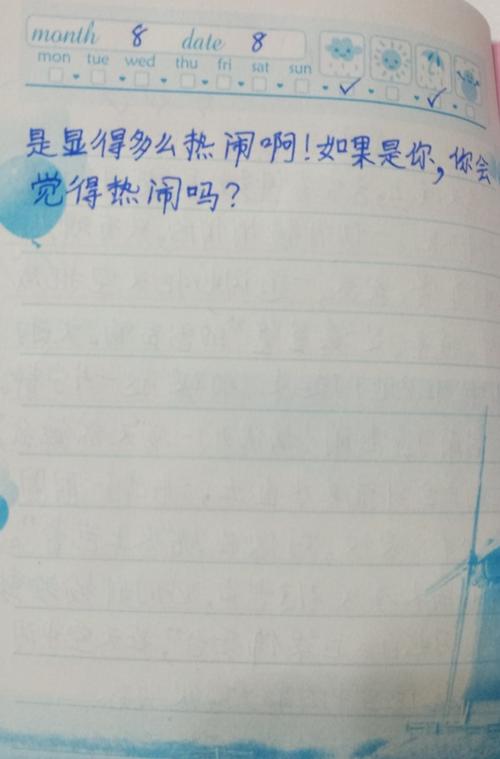 month 8 date 8
mon tue wed thu fri sat sun
是显得多么热闹啊!如果是你,你会
觉得热闹吗?